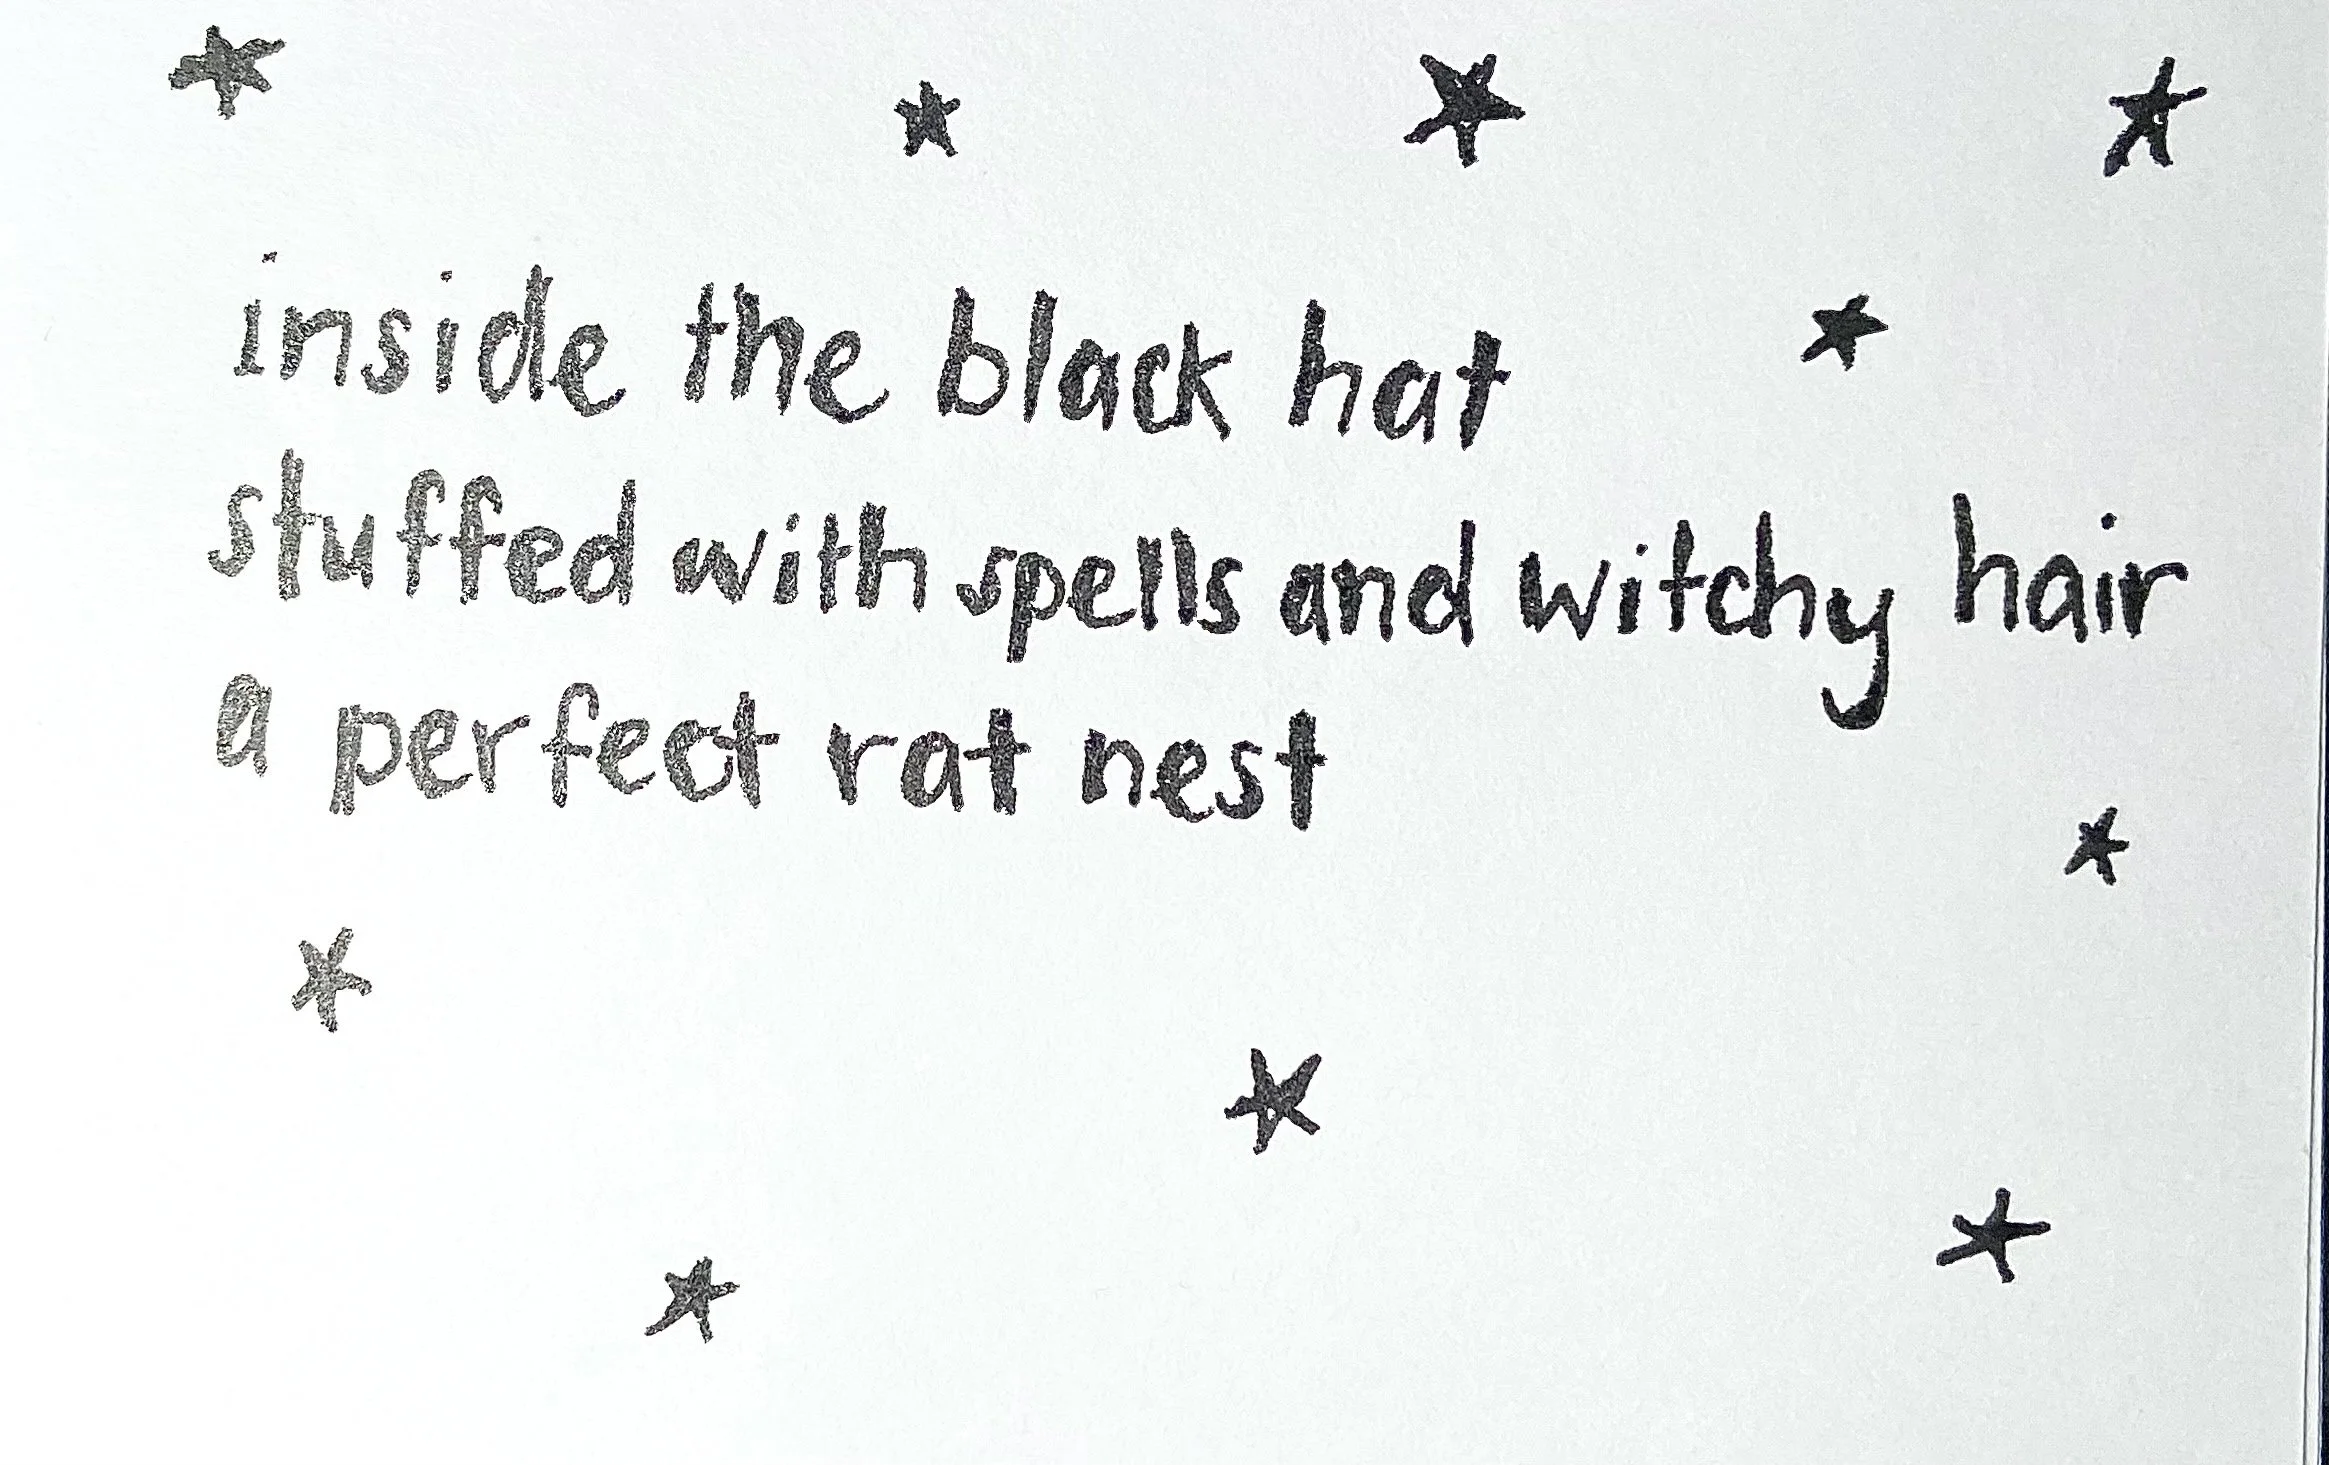 inside the black hat
stuffed with spells and witchy hair
a perfect rat nest